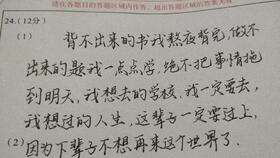 请在各题目的答题区域内作答，超出答题区域的答案无效
24.(12分)
(1) 背不出来的书我熬夜背完，做不
出来的题我一点点学，绝不把事情拖
到明天，我想去的学校，我一定要去，
我想过的人生，这辈子一定要过上，
(2) 因为下辈子不想再来这个世界了．